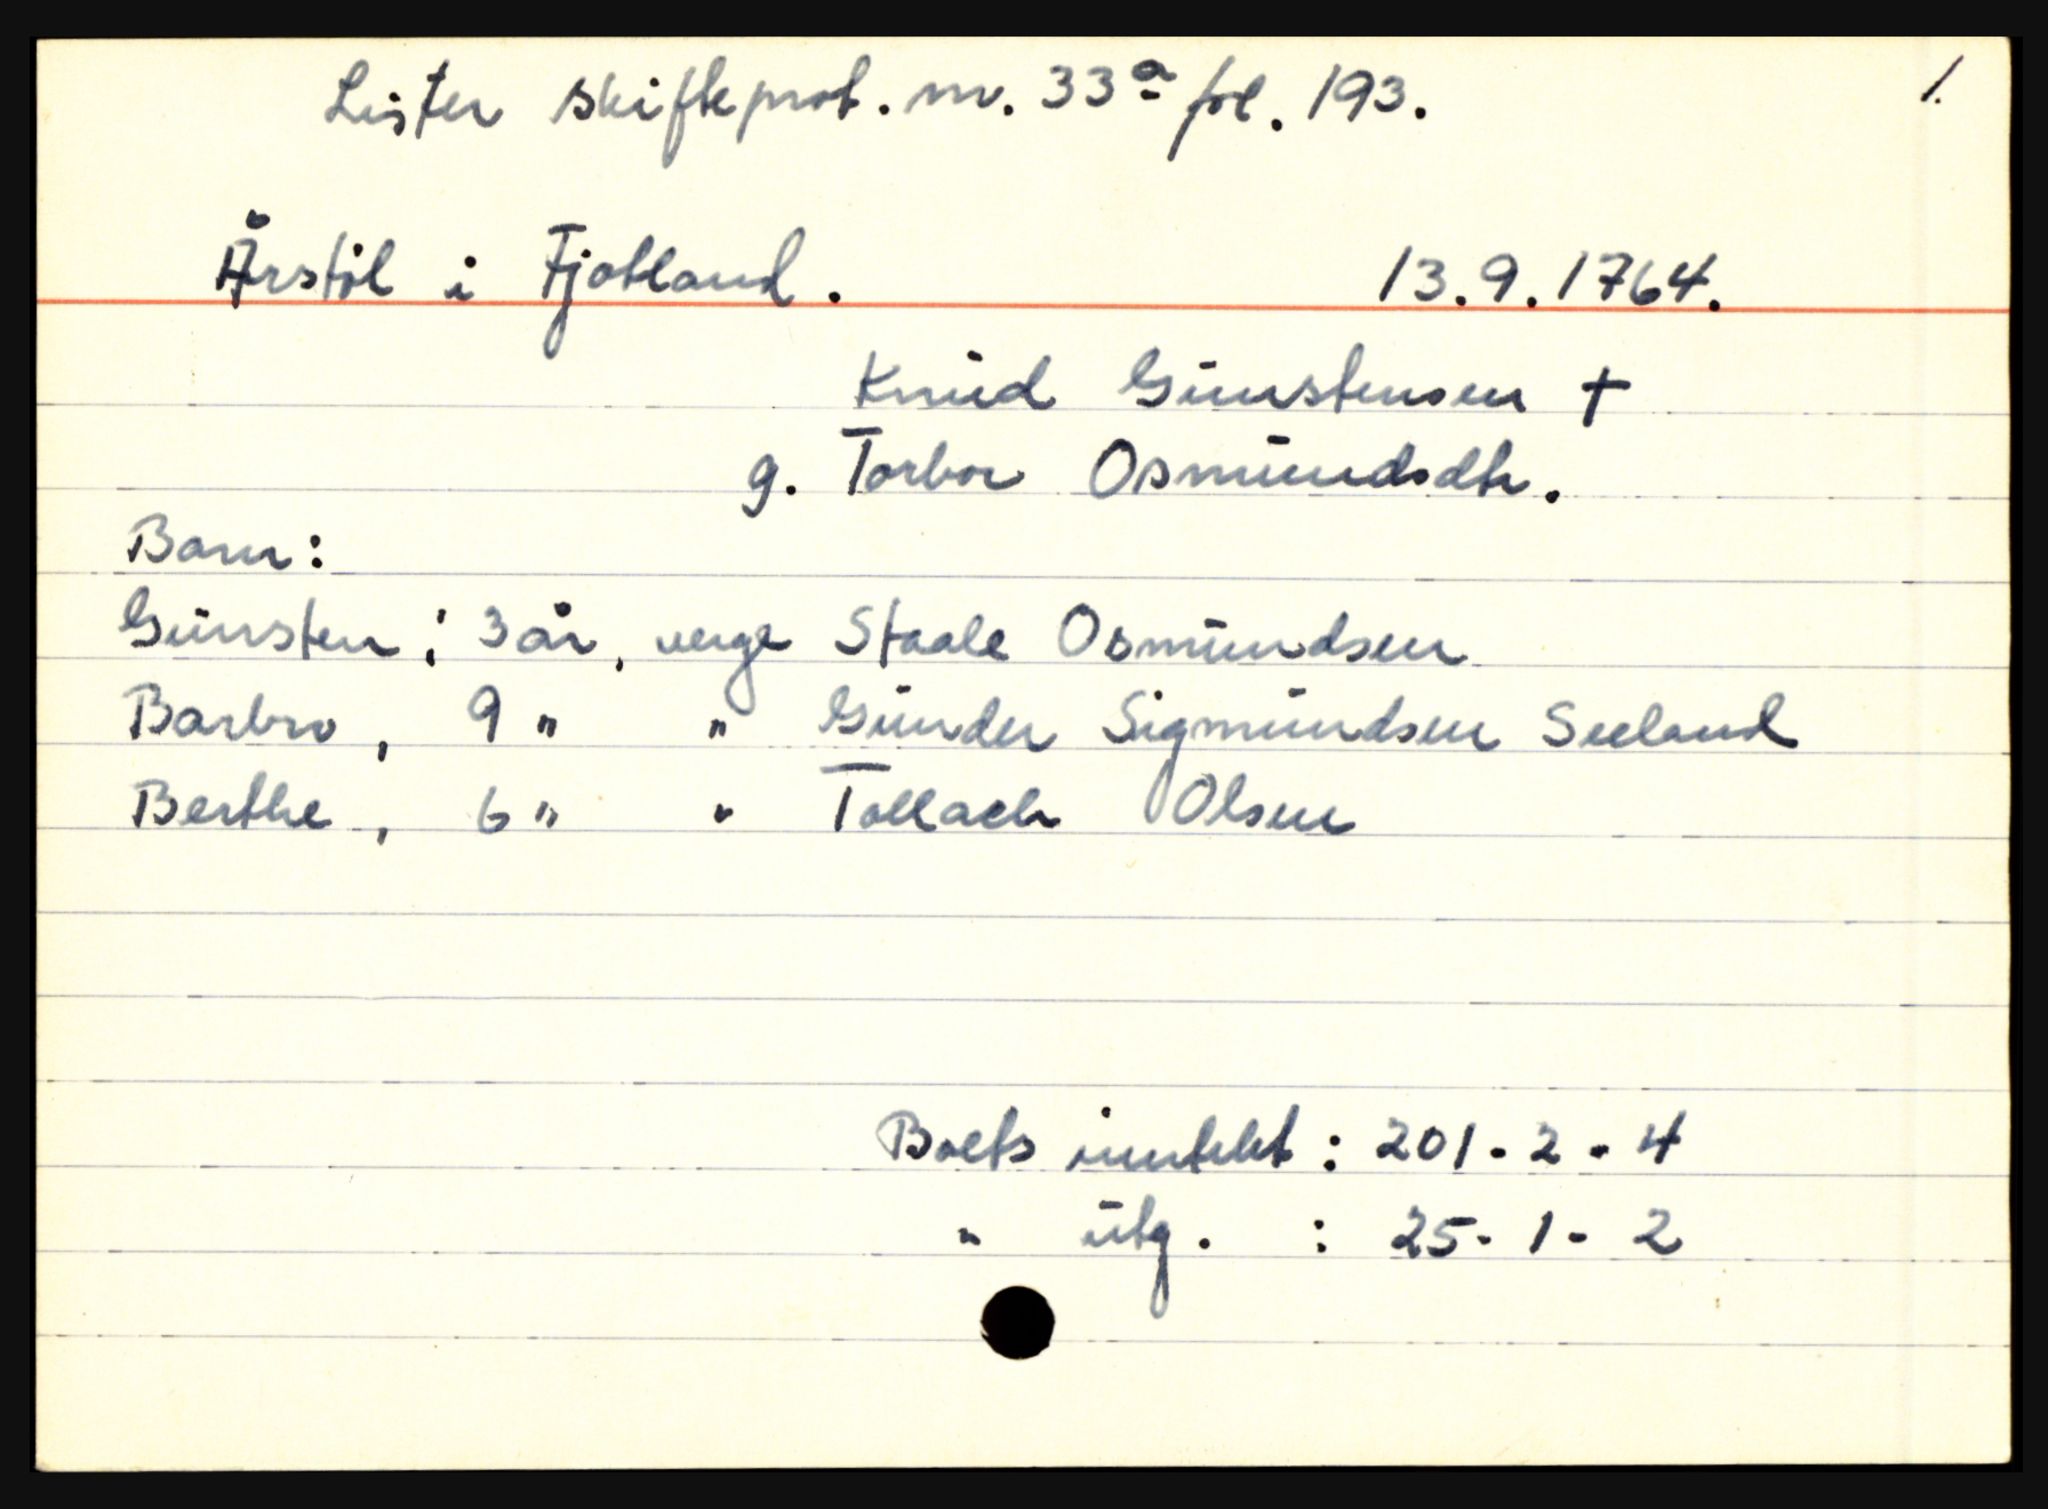 Lister skifteprot. nr. 33a fol. 193. 1.
Årstöl i Fjotland. 13.9.1764.
Knud Gunstensen †
g. Torbor Osmundsdtr.
Barn:
Gunsten; 3 år, verge Staale Osmundsen
Barbro, 9 " " Gunder Sigmundsen Seeland
Berthe, 6 " " Tollach Olsen
Boets inntekt: 201 - 2 - 4
" utg. : 25 - 1 - 2